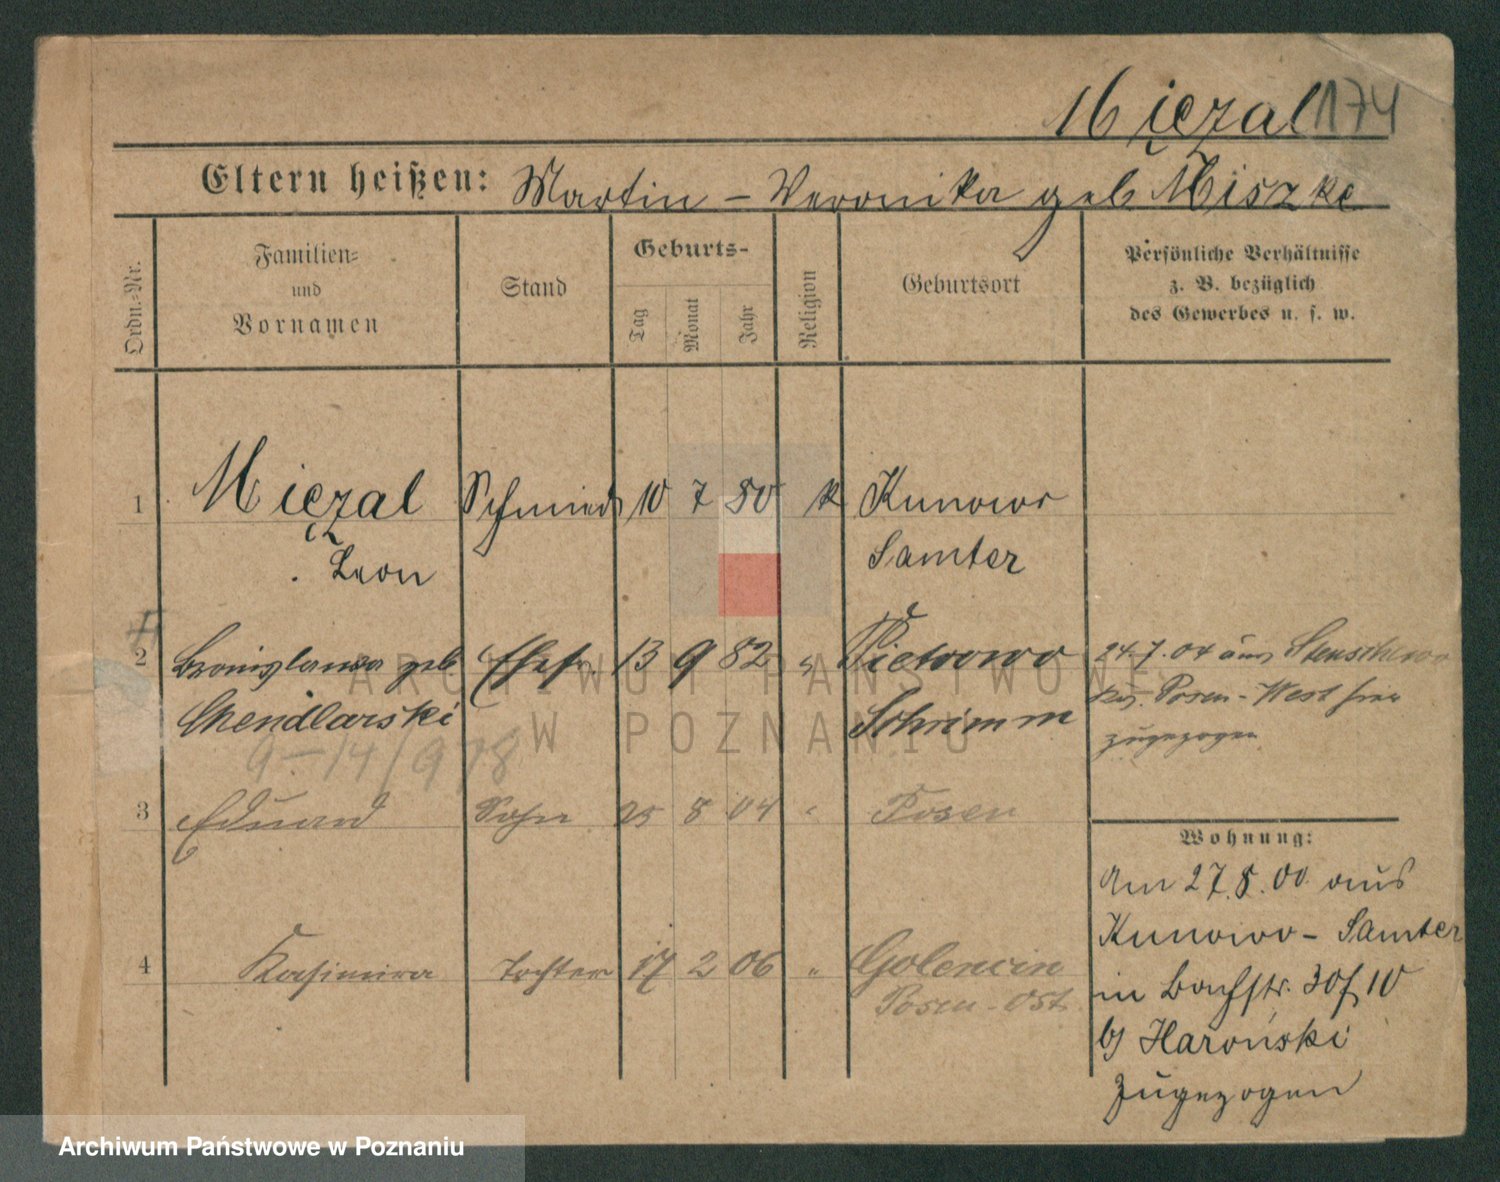 Mięzal 174
Eltern heißen: Martin – Veronika geb Miszke
Ordn.=Nr.
Familien=
und
Vornamen
Stand
Geburts-
Tag
Monat
Jahr
Religion
Geburtsort
Persönliche Verhältnisse
z. B. bezüglich
des Gewerbes u. s. w.
1 Mięzal Schmied 10 7 80 k Kunowo
Leon Samter
2 Bronislawa geb. Ehefr. 13 9 82 " Pietrowo 24.7.04 aus Stenschewo
Mendlarski Schrimm Krs. Posen-West hier
zugezogen
9-14/978
3 Eduard Sohn 25 8 04 " Posen
4 Kasimira Tochter 17 2 06 " Golencin
Posen-Ost
Wohnung:
Am 27.8.00 aus
Kunowo – Samter
in Bachstr. 30 10
b/ Haroński
zugezogen
ARCHIWUM PAŃSTWOWE
W POZNANIU
Archiwum Państwowe w Poznaniu